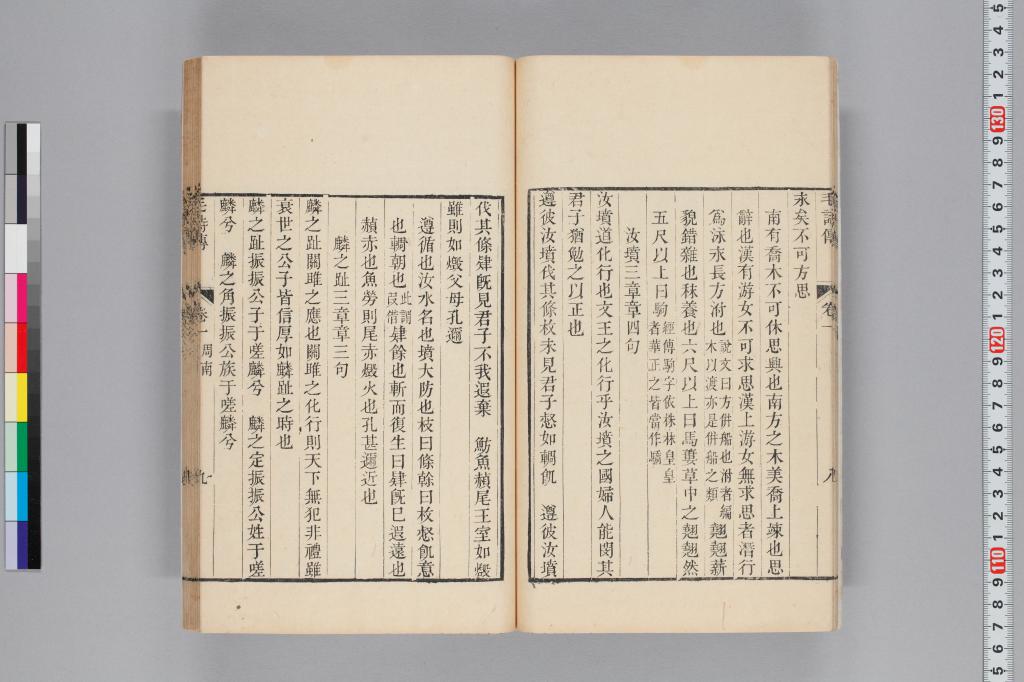 毛詩傳 卷一 九
永矣不可方思
南有喬木不可休思興也南方之木美喬上竦也思
辭也漢有游女不可求思漢上游女無求思者濳行
爲泳永長方泭也說文曰方併船也泭者編木以渡亦是併船之類翹翹薪
貌錯雜也秣養也六尺以上曰馬蔞草中之翹翹然
五尺以上曰駒經傳駒字依株林皇皇者華正之皆當作驕
汝墳三章章四句
汝墳道化行也文王之化行乎汝墳之國婦人能閔其
君子猶勉之以正也
遵彼汝墳伐其條枚未見君子惄如輖飢　遵彼汝墳
伐其條肄旣見君子不我遐棄　魴魚赬尾王室如燬
雖則如燬父母孔邇
遵循也汝水名也墳大防也枝曰條榦曰枚惄飢意
也輖朝也此謂叚借肄餘也斬而復生曰肄旣已遐遠也
赬赤也魚勞則尾赤燬火也孔甚邇近也
麟之趾三章章三句
麟之趾關雎之應也關雎之化行則天下無犯非禮雖
衰世之公子皆信厚如麟趾之時也
麟之趾振振公子于嗟麟兮　麟之定振振公姓于嗟
麟兮　麟之角振振公族于嗟麟兮
毛詩傳 卷一 周南